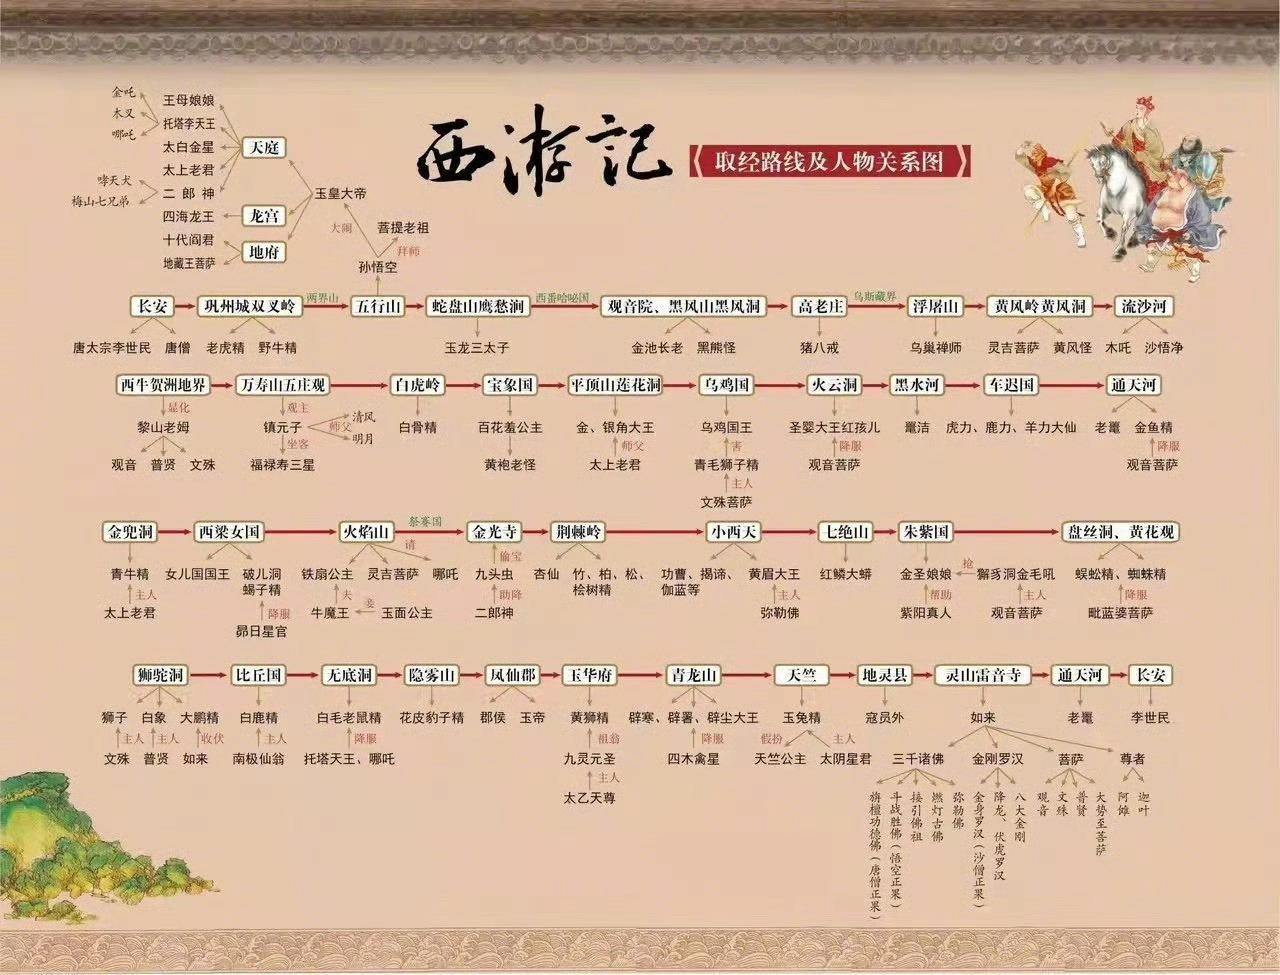 西游记
取经路线及人物关系图
金吒
木叉
哪吒
王母娘娘
托塔李天王
太白金星
太上老君
二郎神
四海龙王
十代阎君
地藏王菩萨
哮天犬
梅山七兄弟
天庭
龙宫
地府
玉皇大帝
大闹
菩提老祖
拜师
孙悟空
长安 巩州城双叉岭 两界山 五行山 蛇盘山鹰愁涧 西番哈咇国 观音院、黑风山黑风洞 高老庄 乌斯藏界 浮屠山 黄风岭黄风洞 流沙河
唐太宗李世民 唐僧 老虎精 野牛精 玉龙三太子 金池长老 黑熊怪 猪八戒 乌巢禅师 灵吉菩萨 黄风怪 木吒 沙悟净
西牛贺洲地界 万寿山五庄观 白虎岭 宝象国 平顶山莲花洞 乌鸡国 火云洞 黑水河 车迟国 通天河
显化 观主
黎山老姆 镇元子 师父 清风 明月 白骨精 百花羞公主 金、银角大王 乌鸡国王 圣婴大王红孩儿 鼍洁 虎力、鹿力、羊力大仙 老鼋 金鱼精
坐客 师父 害 降服 降服
观音 普贤 文殊 福禄寿三星 黄袍老怪 太上老君 青毛狮子精 观音菩萨 观音菩萨
主人
文殊菩萨
金兜洞 西梁女国 火焰山 祭赛国 金光寺 荆棘岭 小西天 七绝山 朱紫国 盘丝洞、黄花观
请 偷宝 抢
青牛精 女儿国国王 破儿洞 铁扇公主 灵吉菩萨 哪吒 九头虫 杏仙 竹、柏、松、 功曹、揭谛、 黄眉大王 红鳞大蟒 金圣娘娘 獬豸洞金毛吼 蜈蚣精、蜘蛛精
蝎子精 桧树精 伽蓝等
主人 降服 夫 妾 助降 主人 帮助 主人 降服
太上老君 昴日星官 牛魔王 玉面公主 二郎神 弥勒佛 紫阳真人 观音菩萨 毗蓝婆菩萨
狮驼洞 比丘国 无底洞 隐雾山 凤仙郡 玉华府 青龙山 天竺 地灵县 灵山雷音寺 通天河 长安
狮子 白象 大鹏精 白鹿精 白毛老鼠精 花皮豹子精 郡侯 玉帝 黄狮精 辟寒、辟署、辟尘大王 玉兔精 寇员外 如来 老鼋 李世民
主人 主人 收伏 主人 降服 祖翁 降服 假扮 主人
文殊 普贤 如来 南极仙翁 托塔天王、哪吒 九灵元圣 四木禽星 天竺公主 太阴星君 三千诸佛 金刚罗汉 菩萨 尊者
主人
太乙天尊
旃檀功德佛（唐僧正果）
斗战胜佛（悟空正果）
接引佛祖
燃灯古佛
弥勒佛
金身罗汉（沙僧正果）
降龙、伏虎罗汉
八大金刚
观音
文殊
普贤
大势至菩萨
阿傩
迦叶